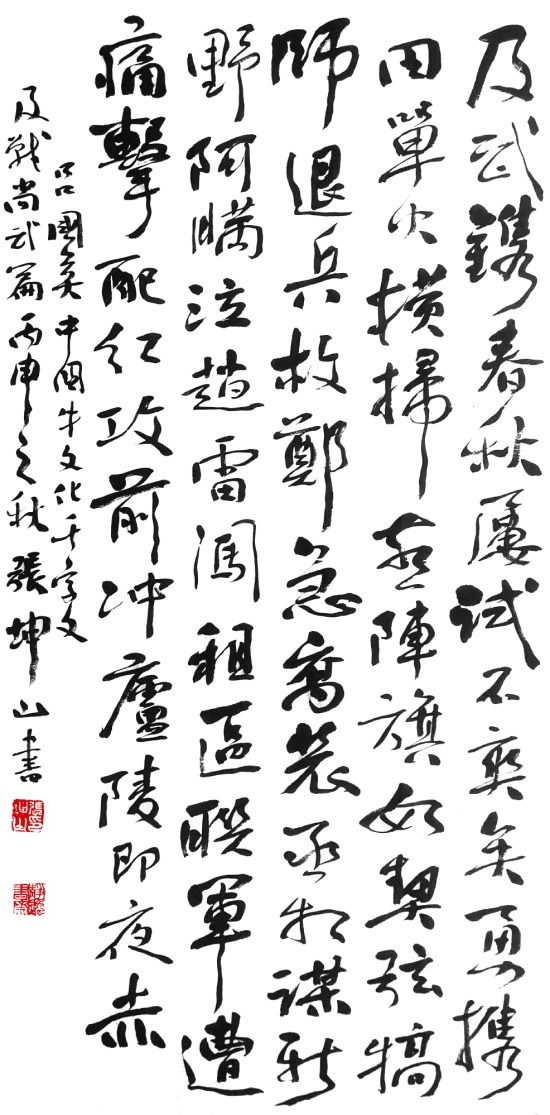 及武鐫春秋屢試不爽矣勇攜
田單火橫掃燕陣旗如契弦犒
師退兵救鄭急喬裝丞相謀新
野阿瞞泣趙雷闖租區聯軍遭
痛擊配紅攻前沖廬陵即夜赤
吕國英中國牛文化千字文
及戰尚武篇丙申之秋張坤山書